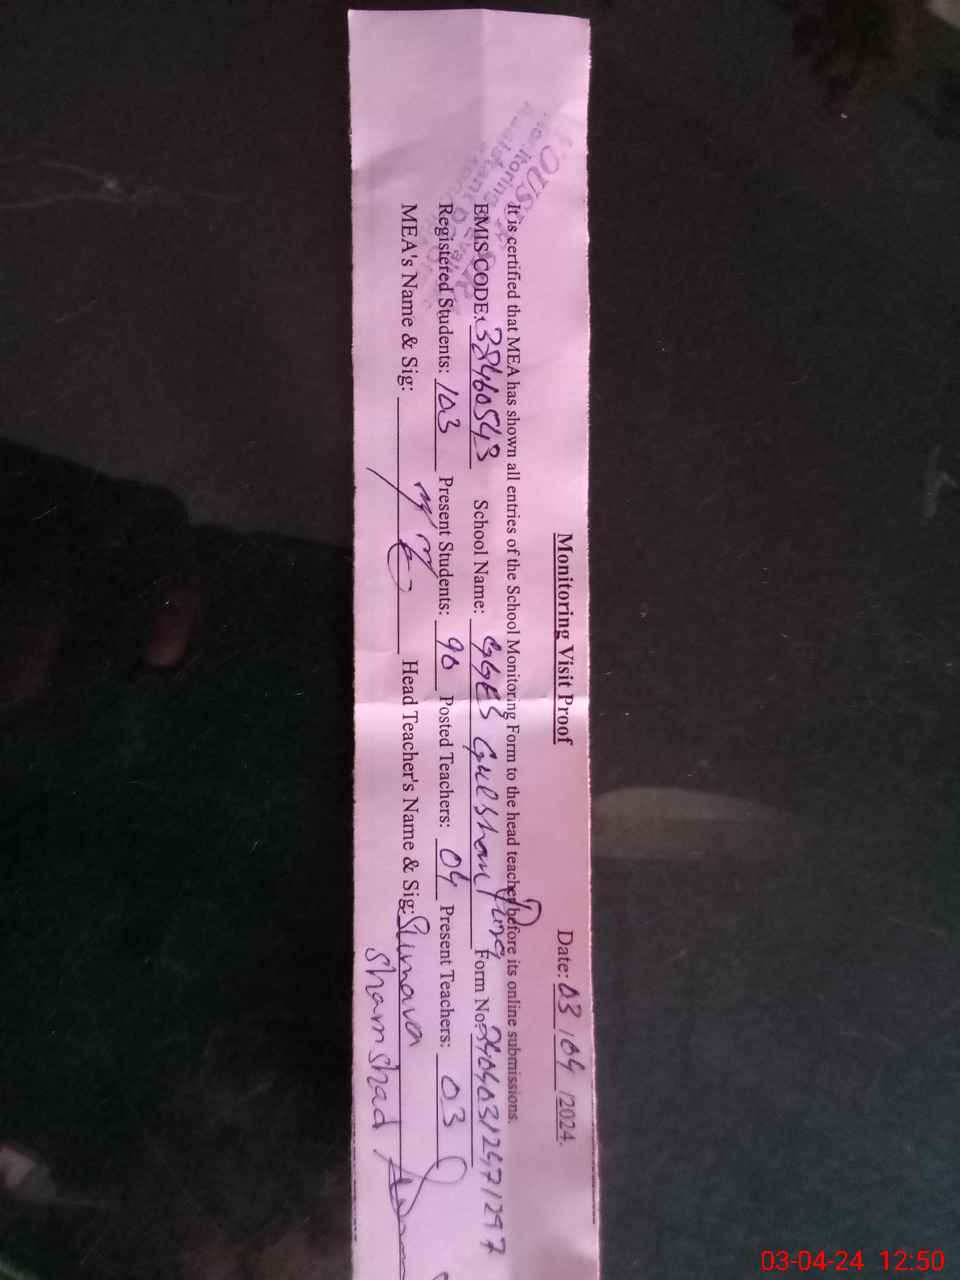 Monitoring Visit Proof
Date: 03/04/2024.
It is certified that MEA has shown all entries of the School Monitoring Form to the head teacher before its online submissions.
EMIS CODE: 38460543 School Name: GGES Gulshan Form No:
Registered Students: 103 Present Students: 90 Posted Teachers: 04 Present Teachers: 03
MEA's Name & Sig: Head Teacher's Name & Sig: Sumaira
Shamshad
Monitoring
Assistant
03-04-24 12:50